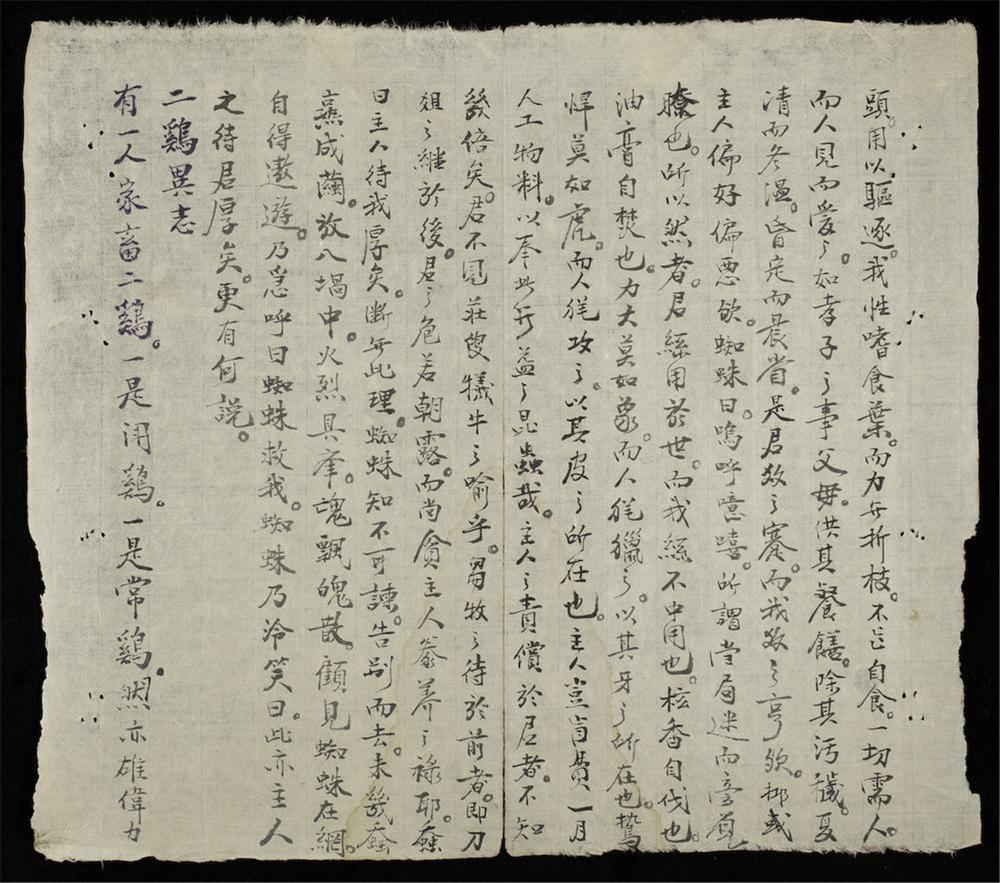 頭。用以驅逐。我性嗜食葉。而力無折枝。不足自食。一切需人。
而人見而愛之。如孝子之事父毋。供其餐饍。除其污穢。夏
清而冬溫。昏定而晨省。是君數之蹇。而我數之亨歟。抑或
主人偏好偏悪歟。蜘蛛曰。嗚呼噫嘻。所謂當局迷而旁覓
瞭也。所以然者。君絲用於世。而我絲不中用也。桂香自伐也。
油膏自焚也。力大莫如象。而人能獵之。以其牙之所在也。鷙
悍莫如虎。而人能攻之。以其皮之所在也。主人豈肯費一月
人工物料。以奉此無益之昆蟲哉。主人之責償於君者。不知
幾倍矣。君不見莊叟犧牛之喻乎。芻牧之待於前者。即刀
俎之継於後。君之危若朝露。而尚貪主人豢养之祿耶。蚕
曰主人待我厚矣。断無此理。蜘蛛知不可諫。告别而去。未幾蚕
熹成繭。放入堝中。火烈具举。魂飄魄散。顧見蜘蛛在網。
自得遨遊。乃急呼曰蜘蛛救我。蜘蛛乃冷笑曰。此亦主人
之待君厚矣。更有何說。
二鷄異志
有一人家畜二鷄。一是闭鷄。一是常鷄。然亦雄偉力